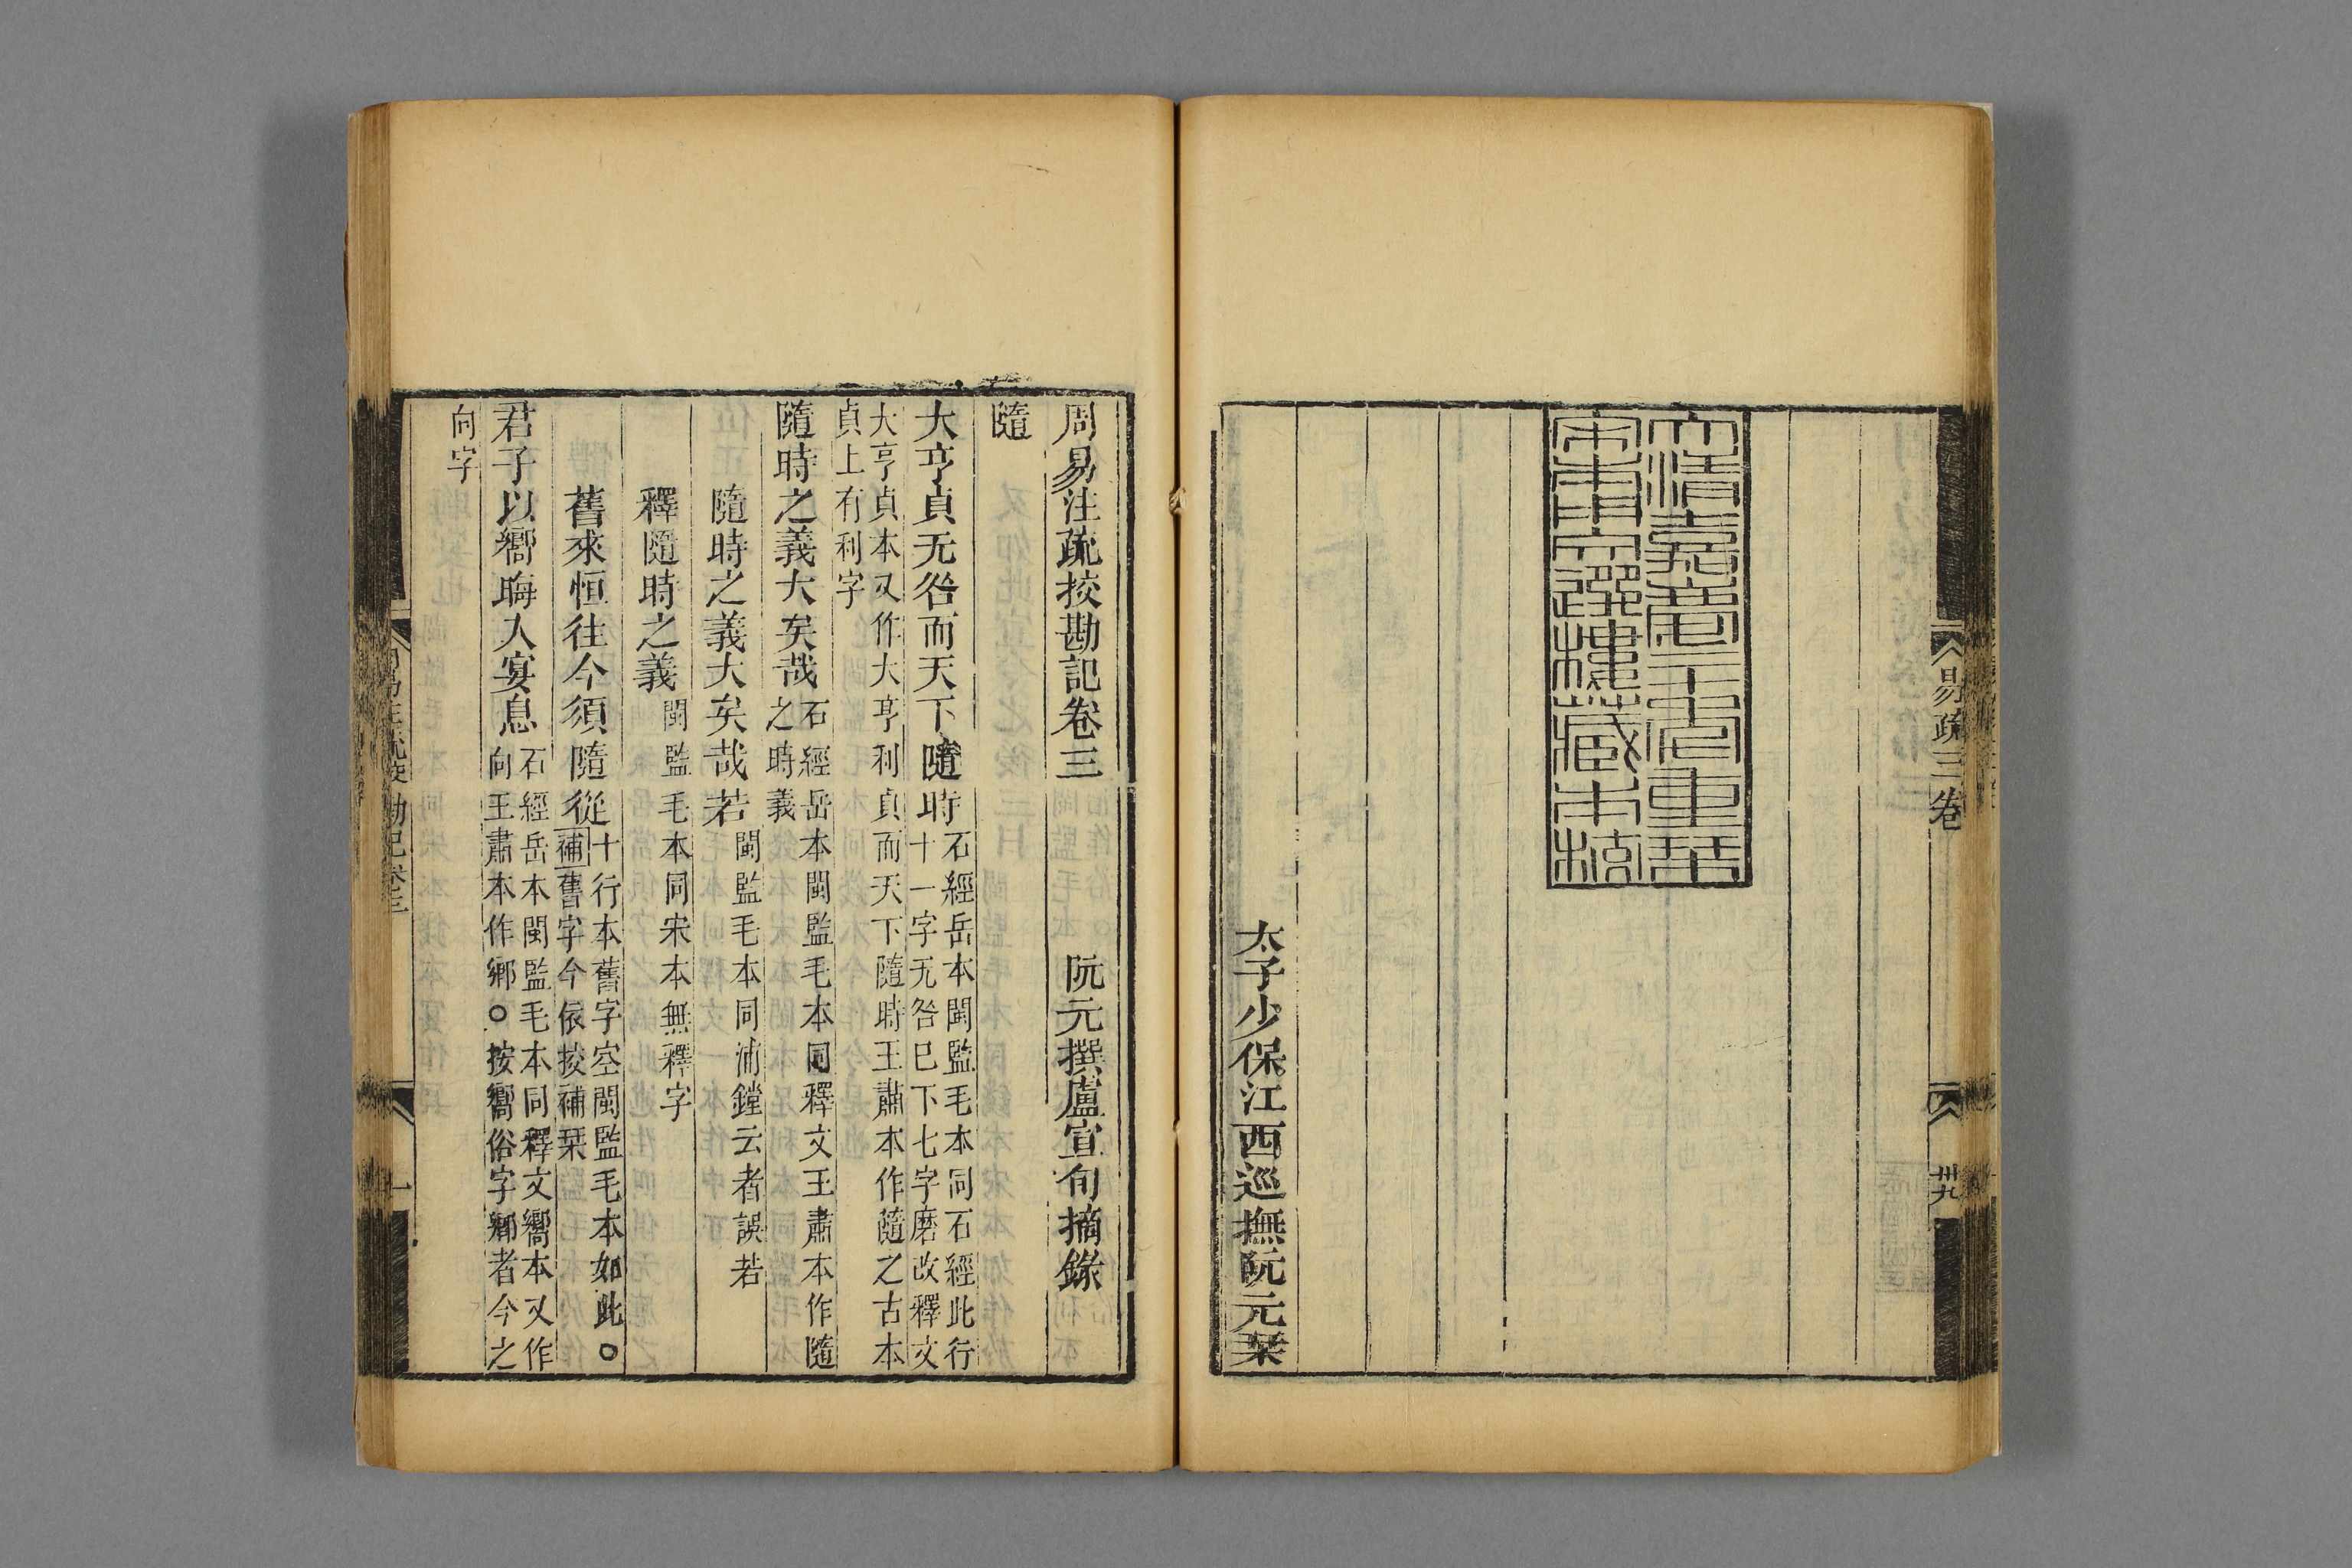 易疏三卷
卅九
大清嘉慶二十一年重栞
宋本文選樓藏本校
太子少保江西巡撫阮元栞
周易注疏挍勘記卷三
阮元撰盧宣旬摘錄
隨
大亨貞无咎而天下隨時
石經岳本閩監毛本同石經此行
十一字无咎已下七字磨改釋文
大亨貞本又作大亨利貞而天下隨時王肅本作隨之古本
貞上有利字
隨時之義大矣哉
石經岳本閩監毛本同釋文王肅本作隨
之時義
隨時之義大矣哉若
閩監毛本同浦鏜云者誤若
釋隨時之義
閩監毛本同宋本無釋字
舊來恒往今須隨從
十行本舊字空閩監毛本如此○
補舊字今依挍補栞
君子以嚮晦入宴息
石經岳本閩監毛本同釋文嚮本又作
向王肅本作鄉○按嚮俗字鄉者今之
向字
一